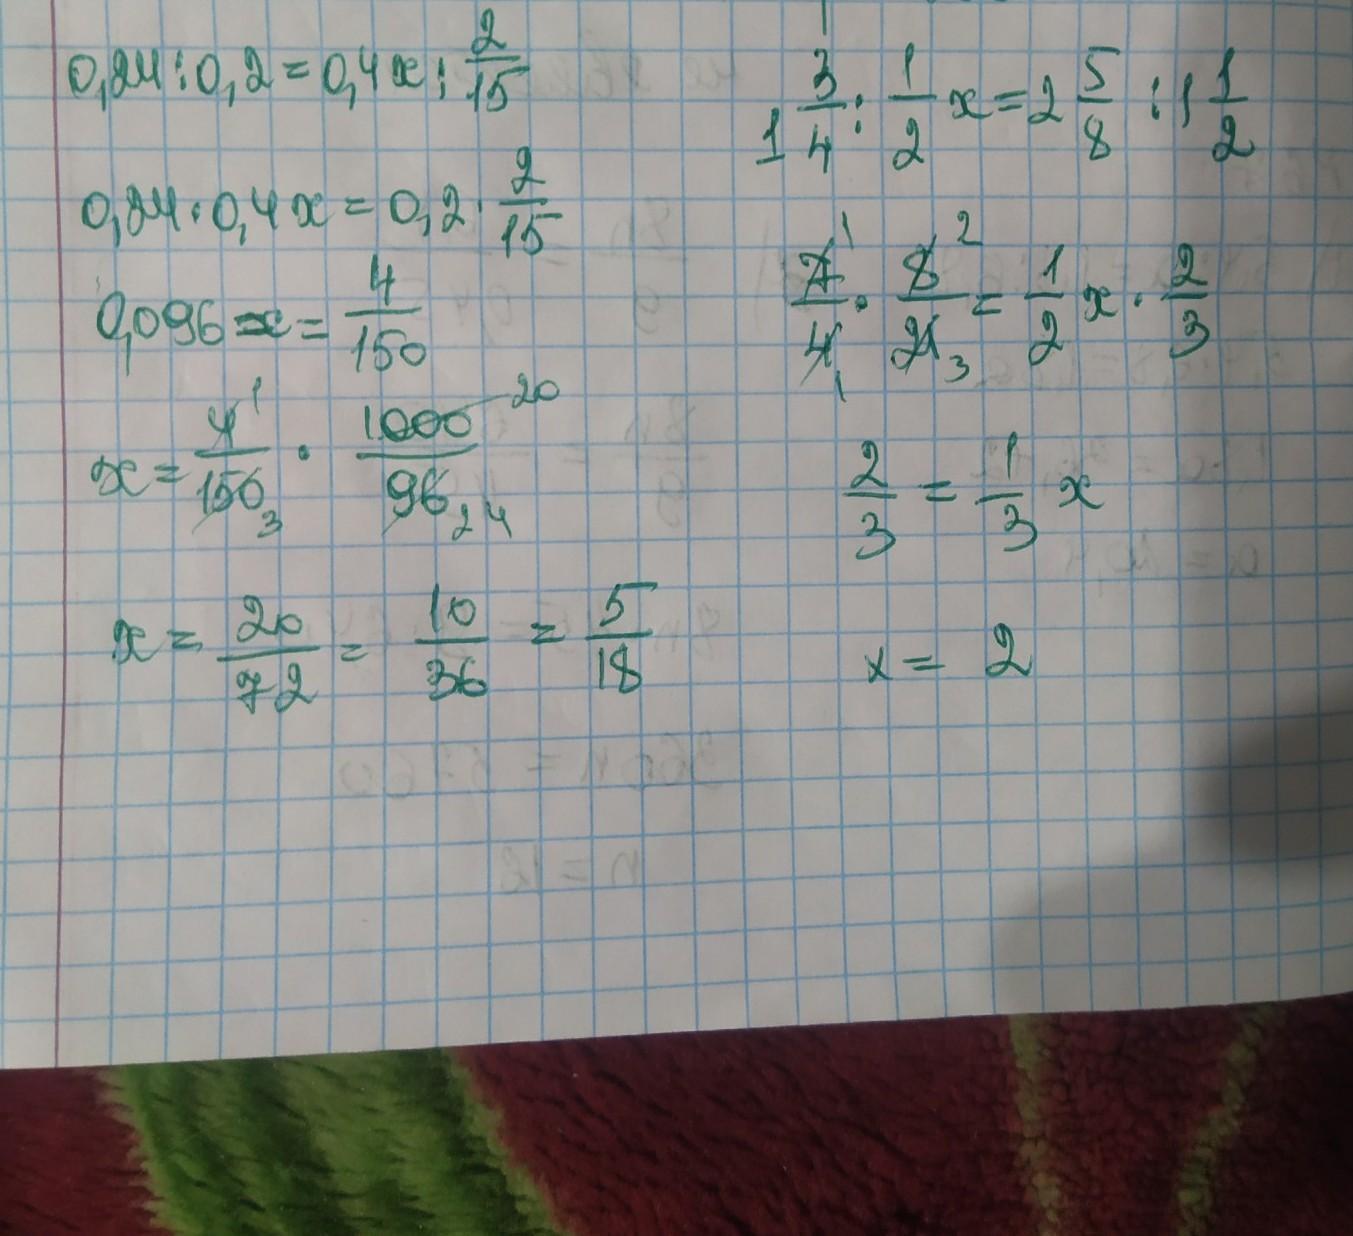 0,24 : 0,2 = 0,4x : 2/15
0,24 · 0,4x = 0,2 · 2/15
0,096x = 4/150
x = 4/150 · 1000/96
1 3 20 24
x = 20/72 = 10/36 = 5/18
1 3/4 : 1/2 x = 2 5/8 : 1 1/2
7/4 · 8/21 = 1/2 x · 2/3
1 1 2 3
2/3 = 1/3 x
x = 2